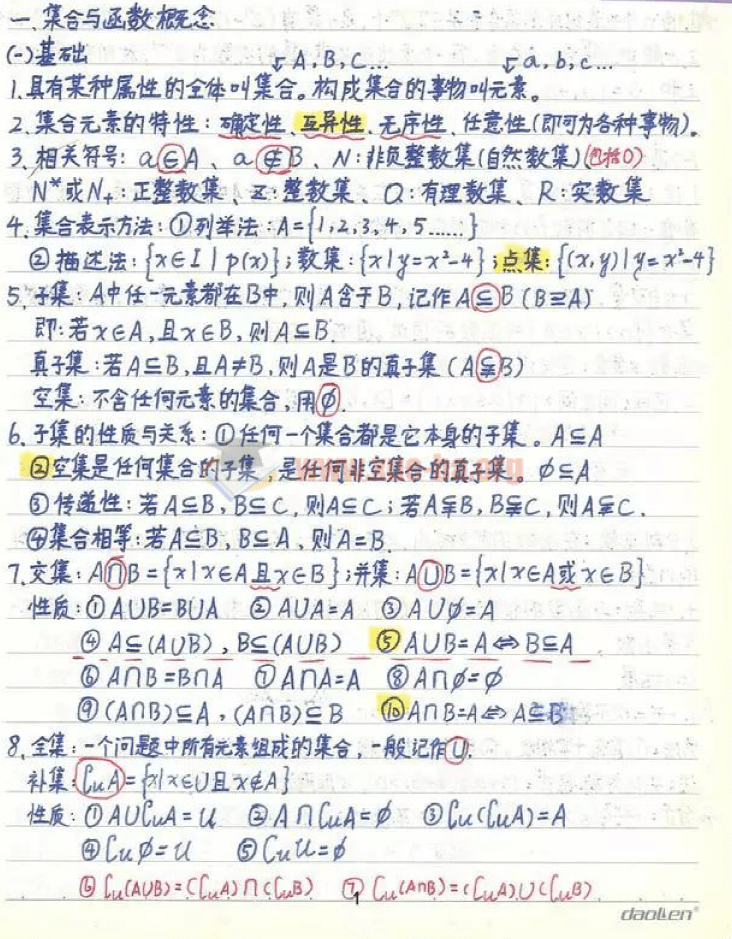 一、集合与函数概念
(一)基础 A,B,C... a,b,c...
1.具有某种属性的全体叫集合。构成集合的事物叫元素。
2.集合元素的特性:确定性、互异性、无序性、任意性(即可为各种事物)。
3.相关符号:a∈A、a∉B、N:非负整数集(自然数集)(包括0)
N*或N₊:正整数集、Z:整数集、Q:有理数集、R:实数集
4.集合表示方法:①列举法:A={1,2,3,4,5……}
②描述法:{x∈I|p(x)};数集:{x|y=x²-4};点集:{(x,y)|y=x²-4}
5.子集:A中任一元素都在B中,则A含于B,记作A⊆B(B⊇A)
即:若x∈A,且x∈B,则A⊆B.
真子集:若A⊆B,且A≠B,则A是B的真子集(A⫋B)
空集:不含任何元素的集合,用∅.
6.子集的性质与关系:①任何一个集合都是它本身的子集。A⊆A
②空集是任何集合的子集,是任何非空集合的真子集。∅⊆A
③传递性:若A⊆B,B⊆C,则A⊆C;若A⫋B,B⫋C,则A⫋C.
④集合相等:若A⊆B,B⊆A,则A=B.
7.交集:A∩B={x|x∈A且x∈B};并集:A∪B={x|x∈A或x∈B}
性质:①A∪B=B∪A ②A∪A=A ③A∪∅=A
④A⊆(A∪B),B⊆(A∪B) ⑤A∪B=A⇔B⊆A
⑥A∩B=B∩A ⑦A∩A=A ⑧A∩∅=∅
⑨(A∩B)⊆A,(A∩B)⊆B ⑩A∩B=A⇔A⊆B
8.全集:一个问题中所有元素组成的集合,一般记作U.
补集:∁uA={x|x∈U且x∉A}
性质:①A∪∁uA=U ②A∩∁uA=∅ ③∁u(∁uA)=A
④∁u∅=U ⑤∁uU=∅
⑥∁u(A∪B)=(∁uA)∩(∁uB) ⑦∁u(A∩B)=(∁uA)∪(∁uB)
1
daolen®